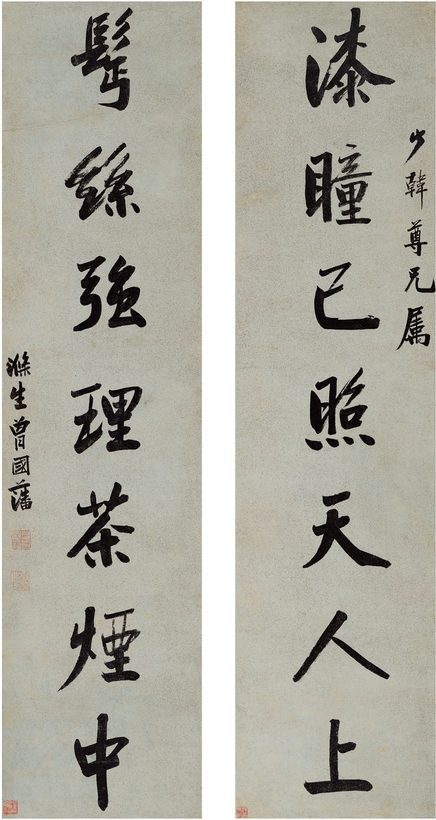 漆瞳已照天人上
少韓尊兄属
鬢絲強理茶煙中
滌生曾國藩